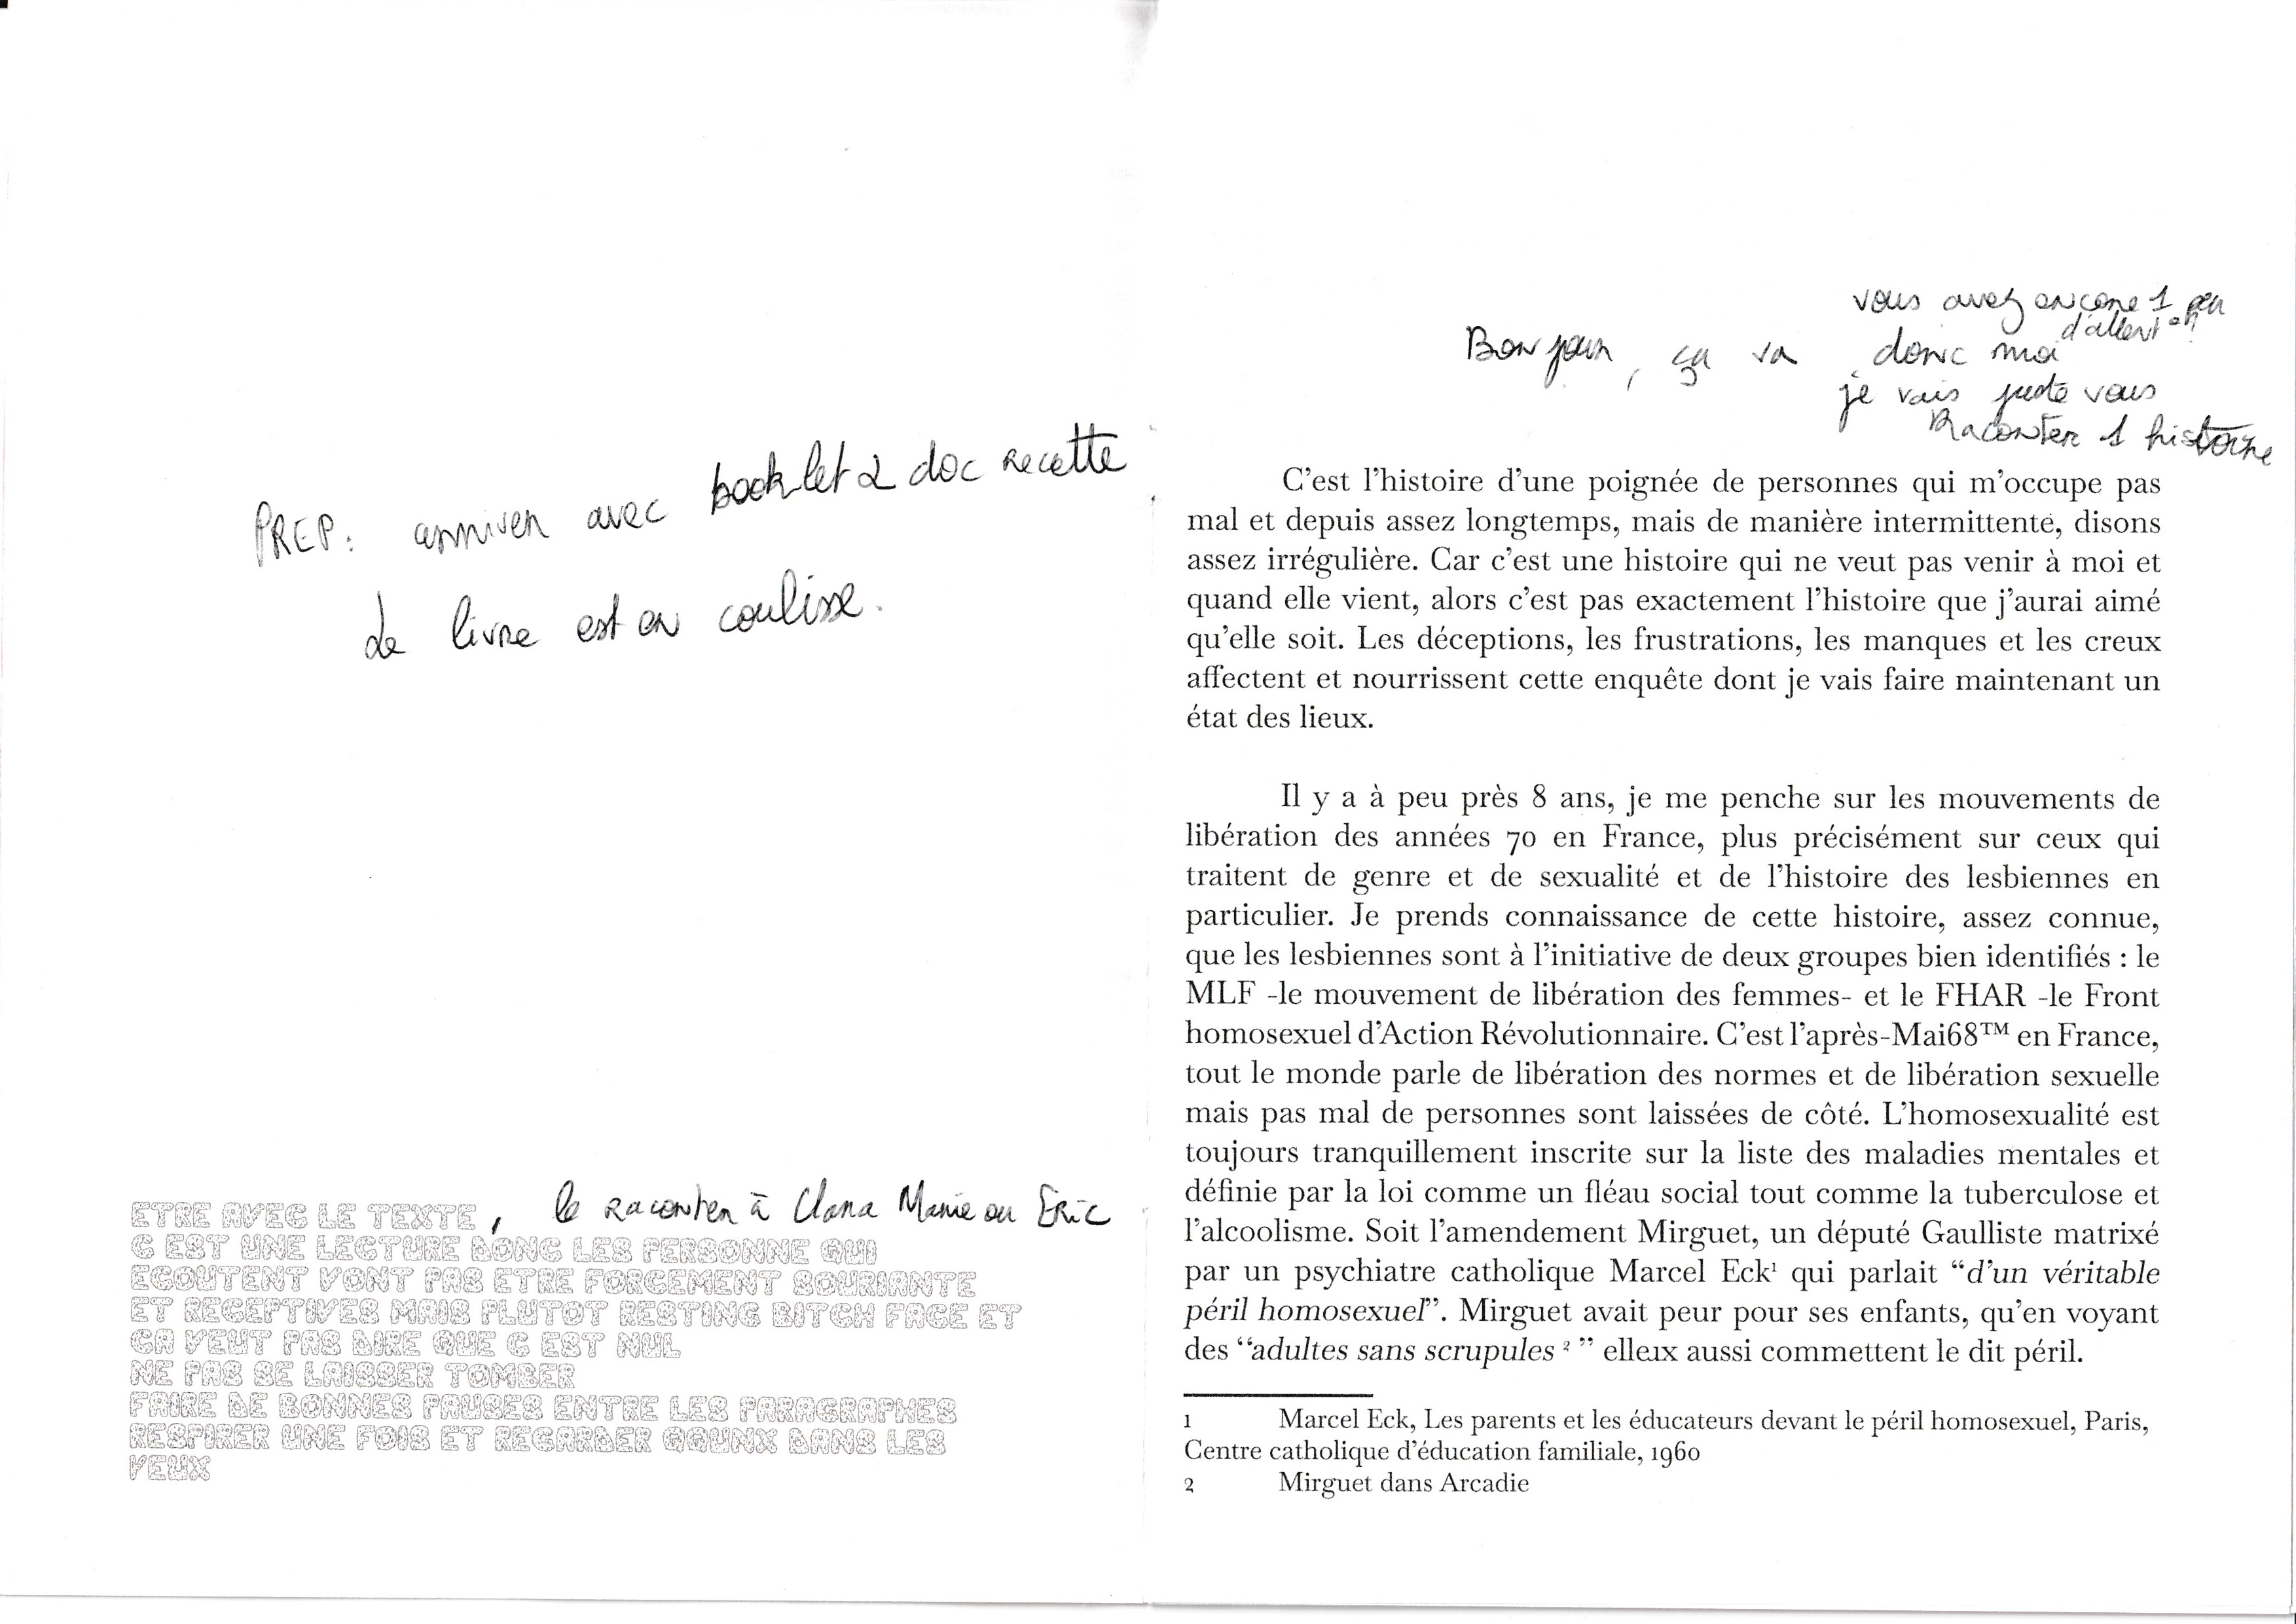 PREP: arriver avec booklet 2 doc recette
le livre est en coulisse.
ETRE AVEC LE TEXTE, le raconter à Clara Marie ou Eric
C EST UNE LECTURE DONC LES PERSONNE QUI
ECOUTENT VONT PAS ETRE FORCEMENT SOURIANTE
ET RECEPTIVES MAIS PLUTOT RESTING BITCH FACE ET
CA VEUT PAS DIRE QUE C EST NUL
NE PAS SE LAISSER TOMBER
FAIRE DE BONNES PAUSES ENTRE LES PARAGRAPHES
RESPIRER UNE FOIS ET REGARDER QQUNX DANS LES
YEUX
vous avez encore 1 peu
d'attent°n
Bonjour, ça va donc moi
je vais juste vous
Raconter 1 histoire
C'est l'histoire d'une poignée de personnes qui m'occupe pas
mal et depuis assez longtemps, mais de manière intermittente, disons
assez irrégulière. Car c'est une histoire qui ne veut pas venir à moi et
quand elle vient, alors c'est pas exactement l'histoire que j'aurai aimé
qu'elle soit. Les déceptions, les frustrations, les manques et les creux
affectent et nourrissent cette enquête dont je vais faire maintenant un
état des lieux.
Il y a à peu près 8 ans, je me penche sur les mouvements de
libération des années 70 en France, plus précisément sur ceux qui
traitent de genre et de sexualité et de l'histoire des lesbiennes en
particulier. Je prends connaissance de cette histoire, assez connue,
que les lesbiennes sont à l'initiative de deux groupes bien identifiés : le
MLF -le mouvement de libération des femmes- et le FHAR -le Front
homosexuel d'Action Révolutionnaire. C'est l'après-Mai68™ en France,
tout le monde parle de libération des normes et de libération sexuelle
mais pas mal de personnes sont laissées de côté. L'homosexualité est
toujours tranquillement inscrite sur la liste des maladies mentales et
définie par la loi comme un fléau social tout comme la tuberculose et
l'alcoolisme. Soit l'amendement Mirguet, un député Gaulliste matrixé
par un psychiatre catholique Marcel Eck¹ qui parlait “d'un véritable
péril homosexuel”. Mirguet avait peur pour ses enfants, qu'en voyant
des “adultes sans scrupules ² ” elleux aussi commettent le dit péril.
1 Marcel Eck, Les parents et les éducateurs devant le péril homosexuel, Paris,
Centre catholique d'éducation familiale, 1960
2 Mirguet dans Arcadie